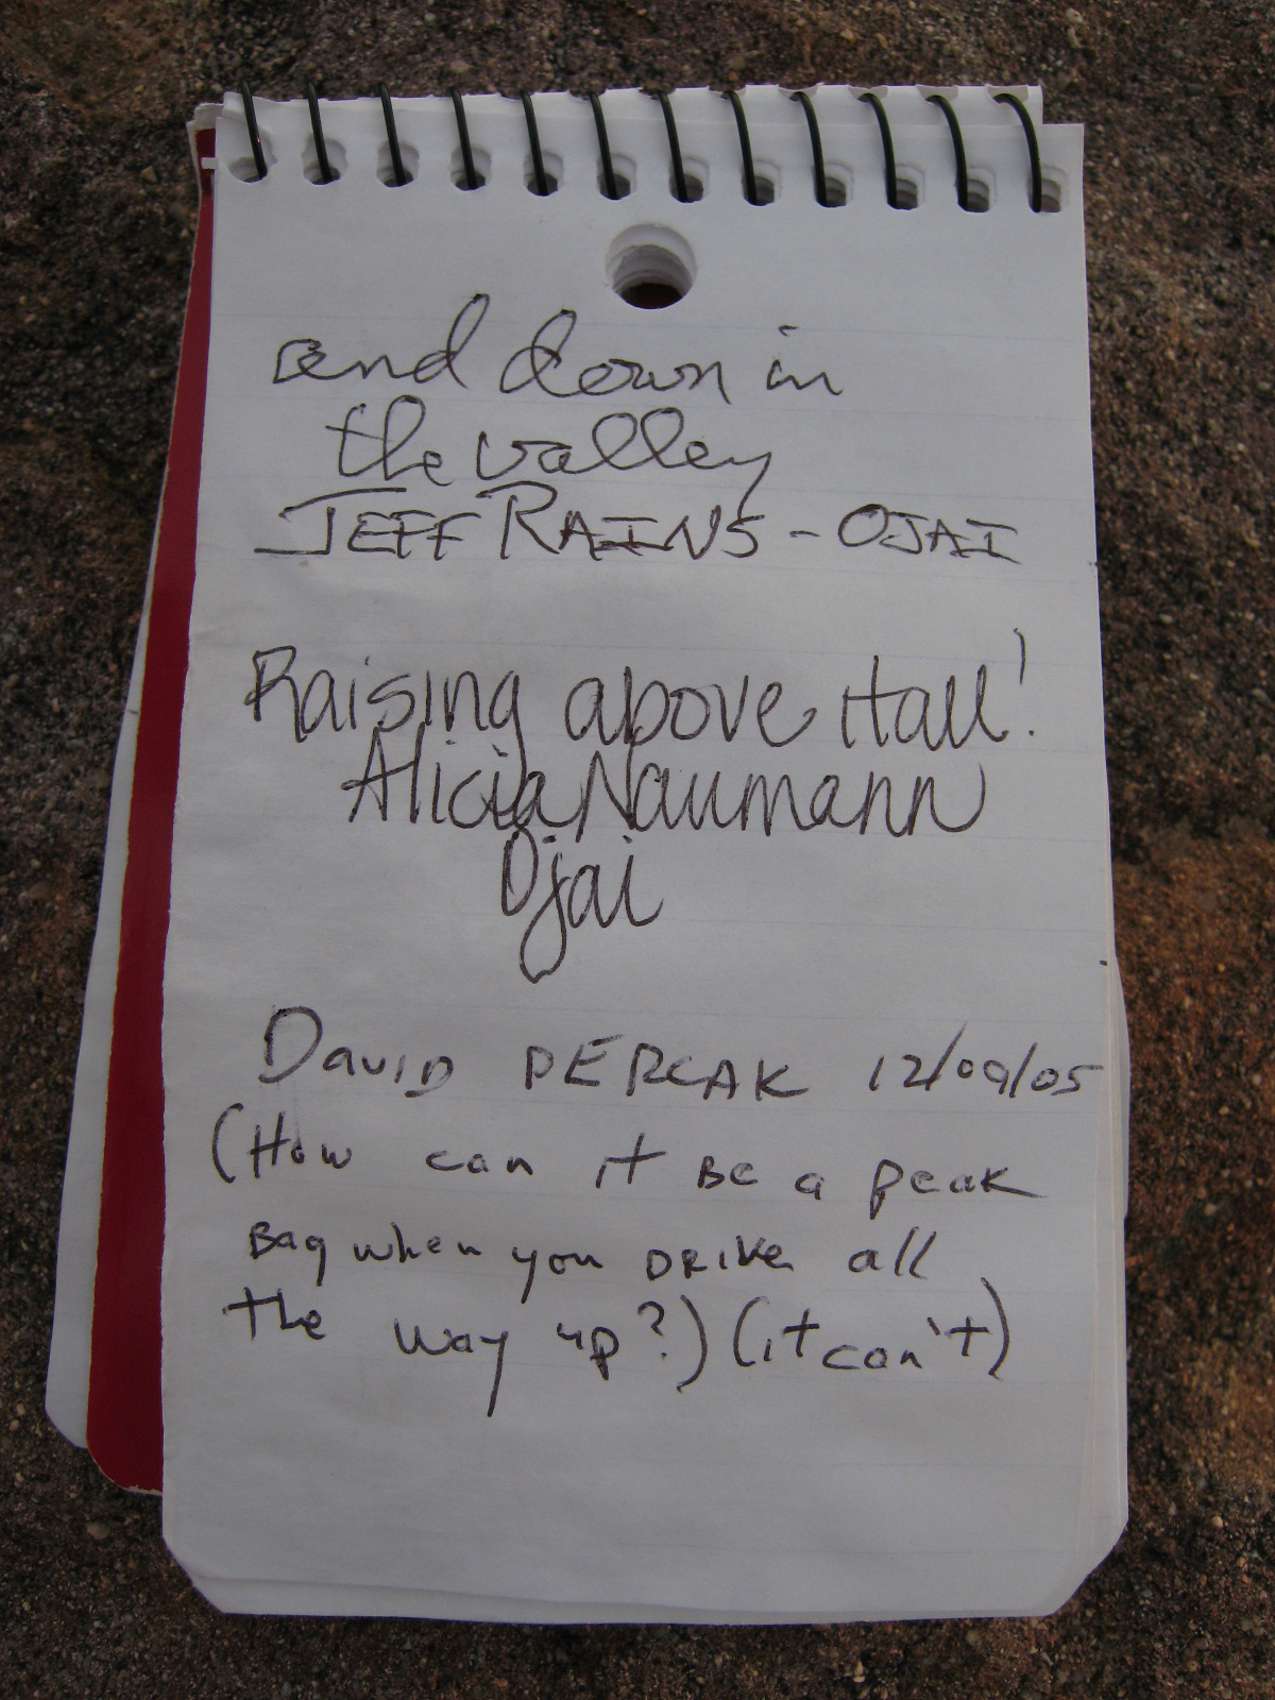 and down in
the valley
JEFF RAINS - OJAI
Raising above it all!
Alicia Naumann
Ojai
DAVID PERCAK 12/09/05
(How can it Be a peak
Bag when you DRIVE all
the way up?) (it can't)